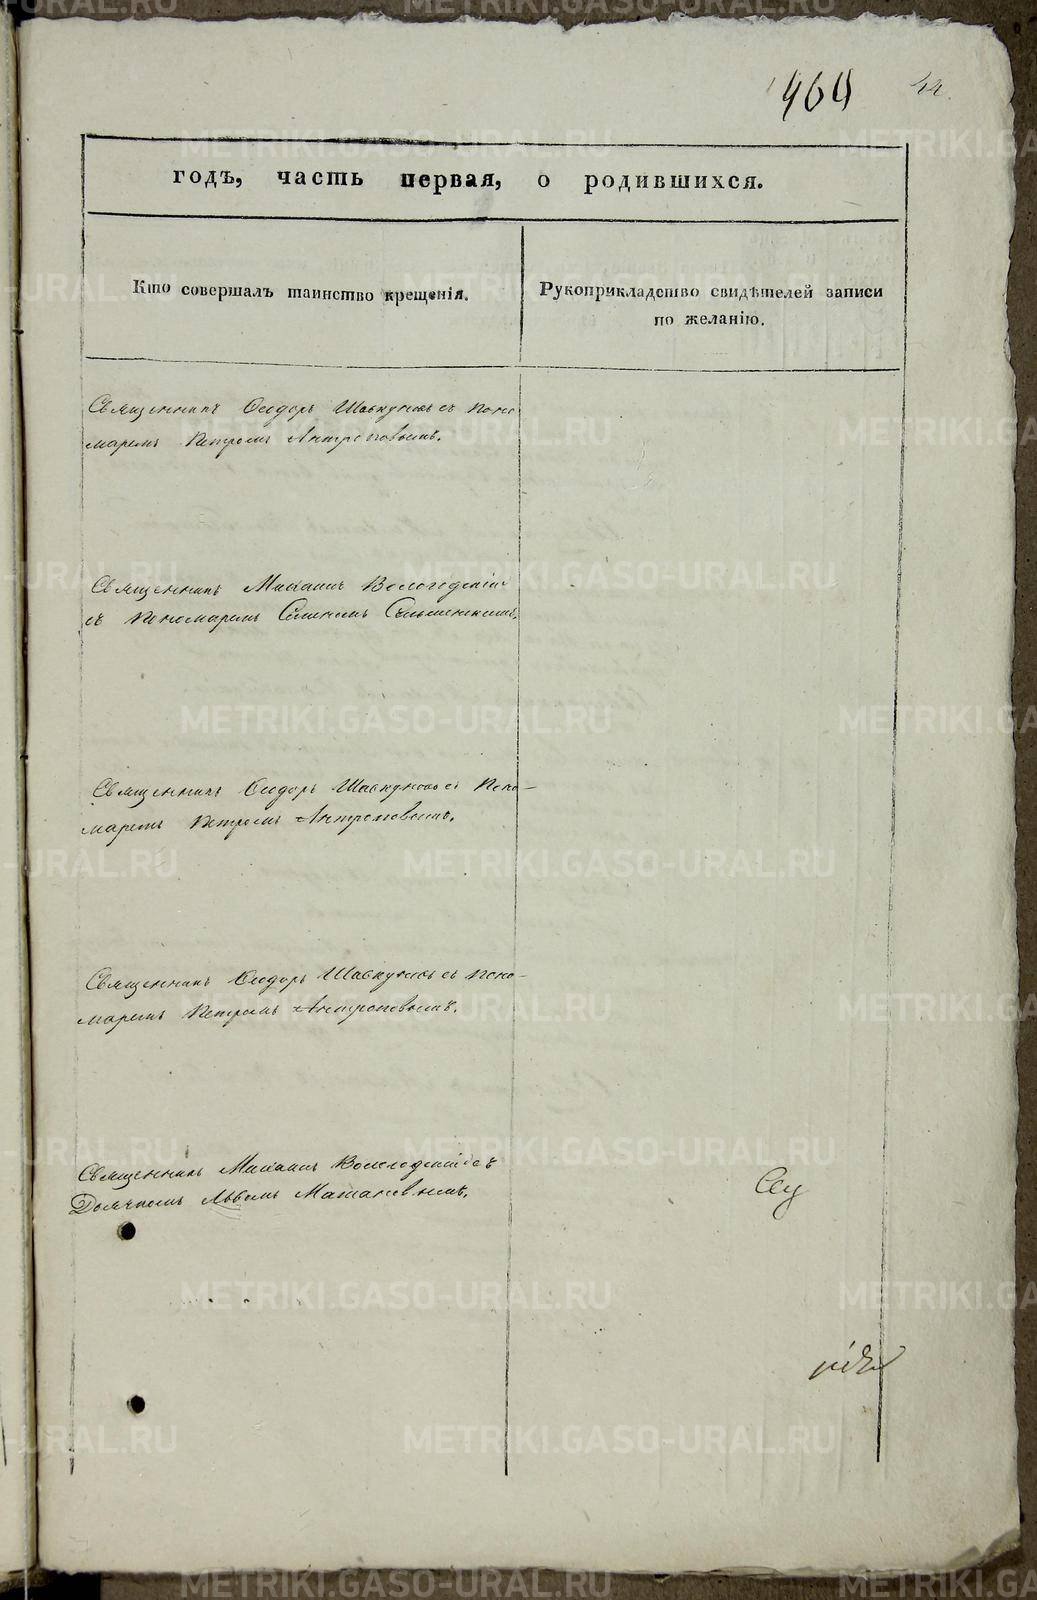 464 44.
годъ, часть первая, о родившихся.
Кто совершалъ таинство крещенія.
Рукоприкладство свидѣтелей записи
по желанію.
Священникъ Ѳеодоръ Шавкуновъ съ Поно
маремъ Петромъ Антроповымъ.
Священникъ Михаилъ Вологодскій
съ Пономаремъ
Священникъ Ѳеодоръ Шавкуновъ съ Поно-
маремъ Петромъ Антроповымъ.
Священникъ Ѳеодоръ Шавкуновъ съ Поно-
маремъ Петромъ Антроповымъ.
Священникъ Михаилъ Вологодскій съ
Дьячкомъ Львомъ
METRIKI.GASO-URAL.RU